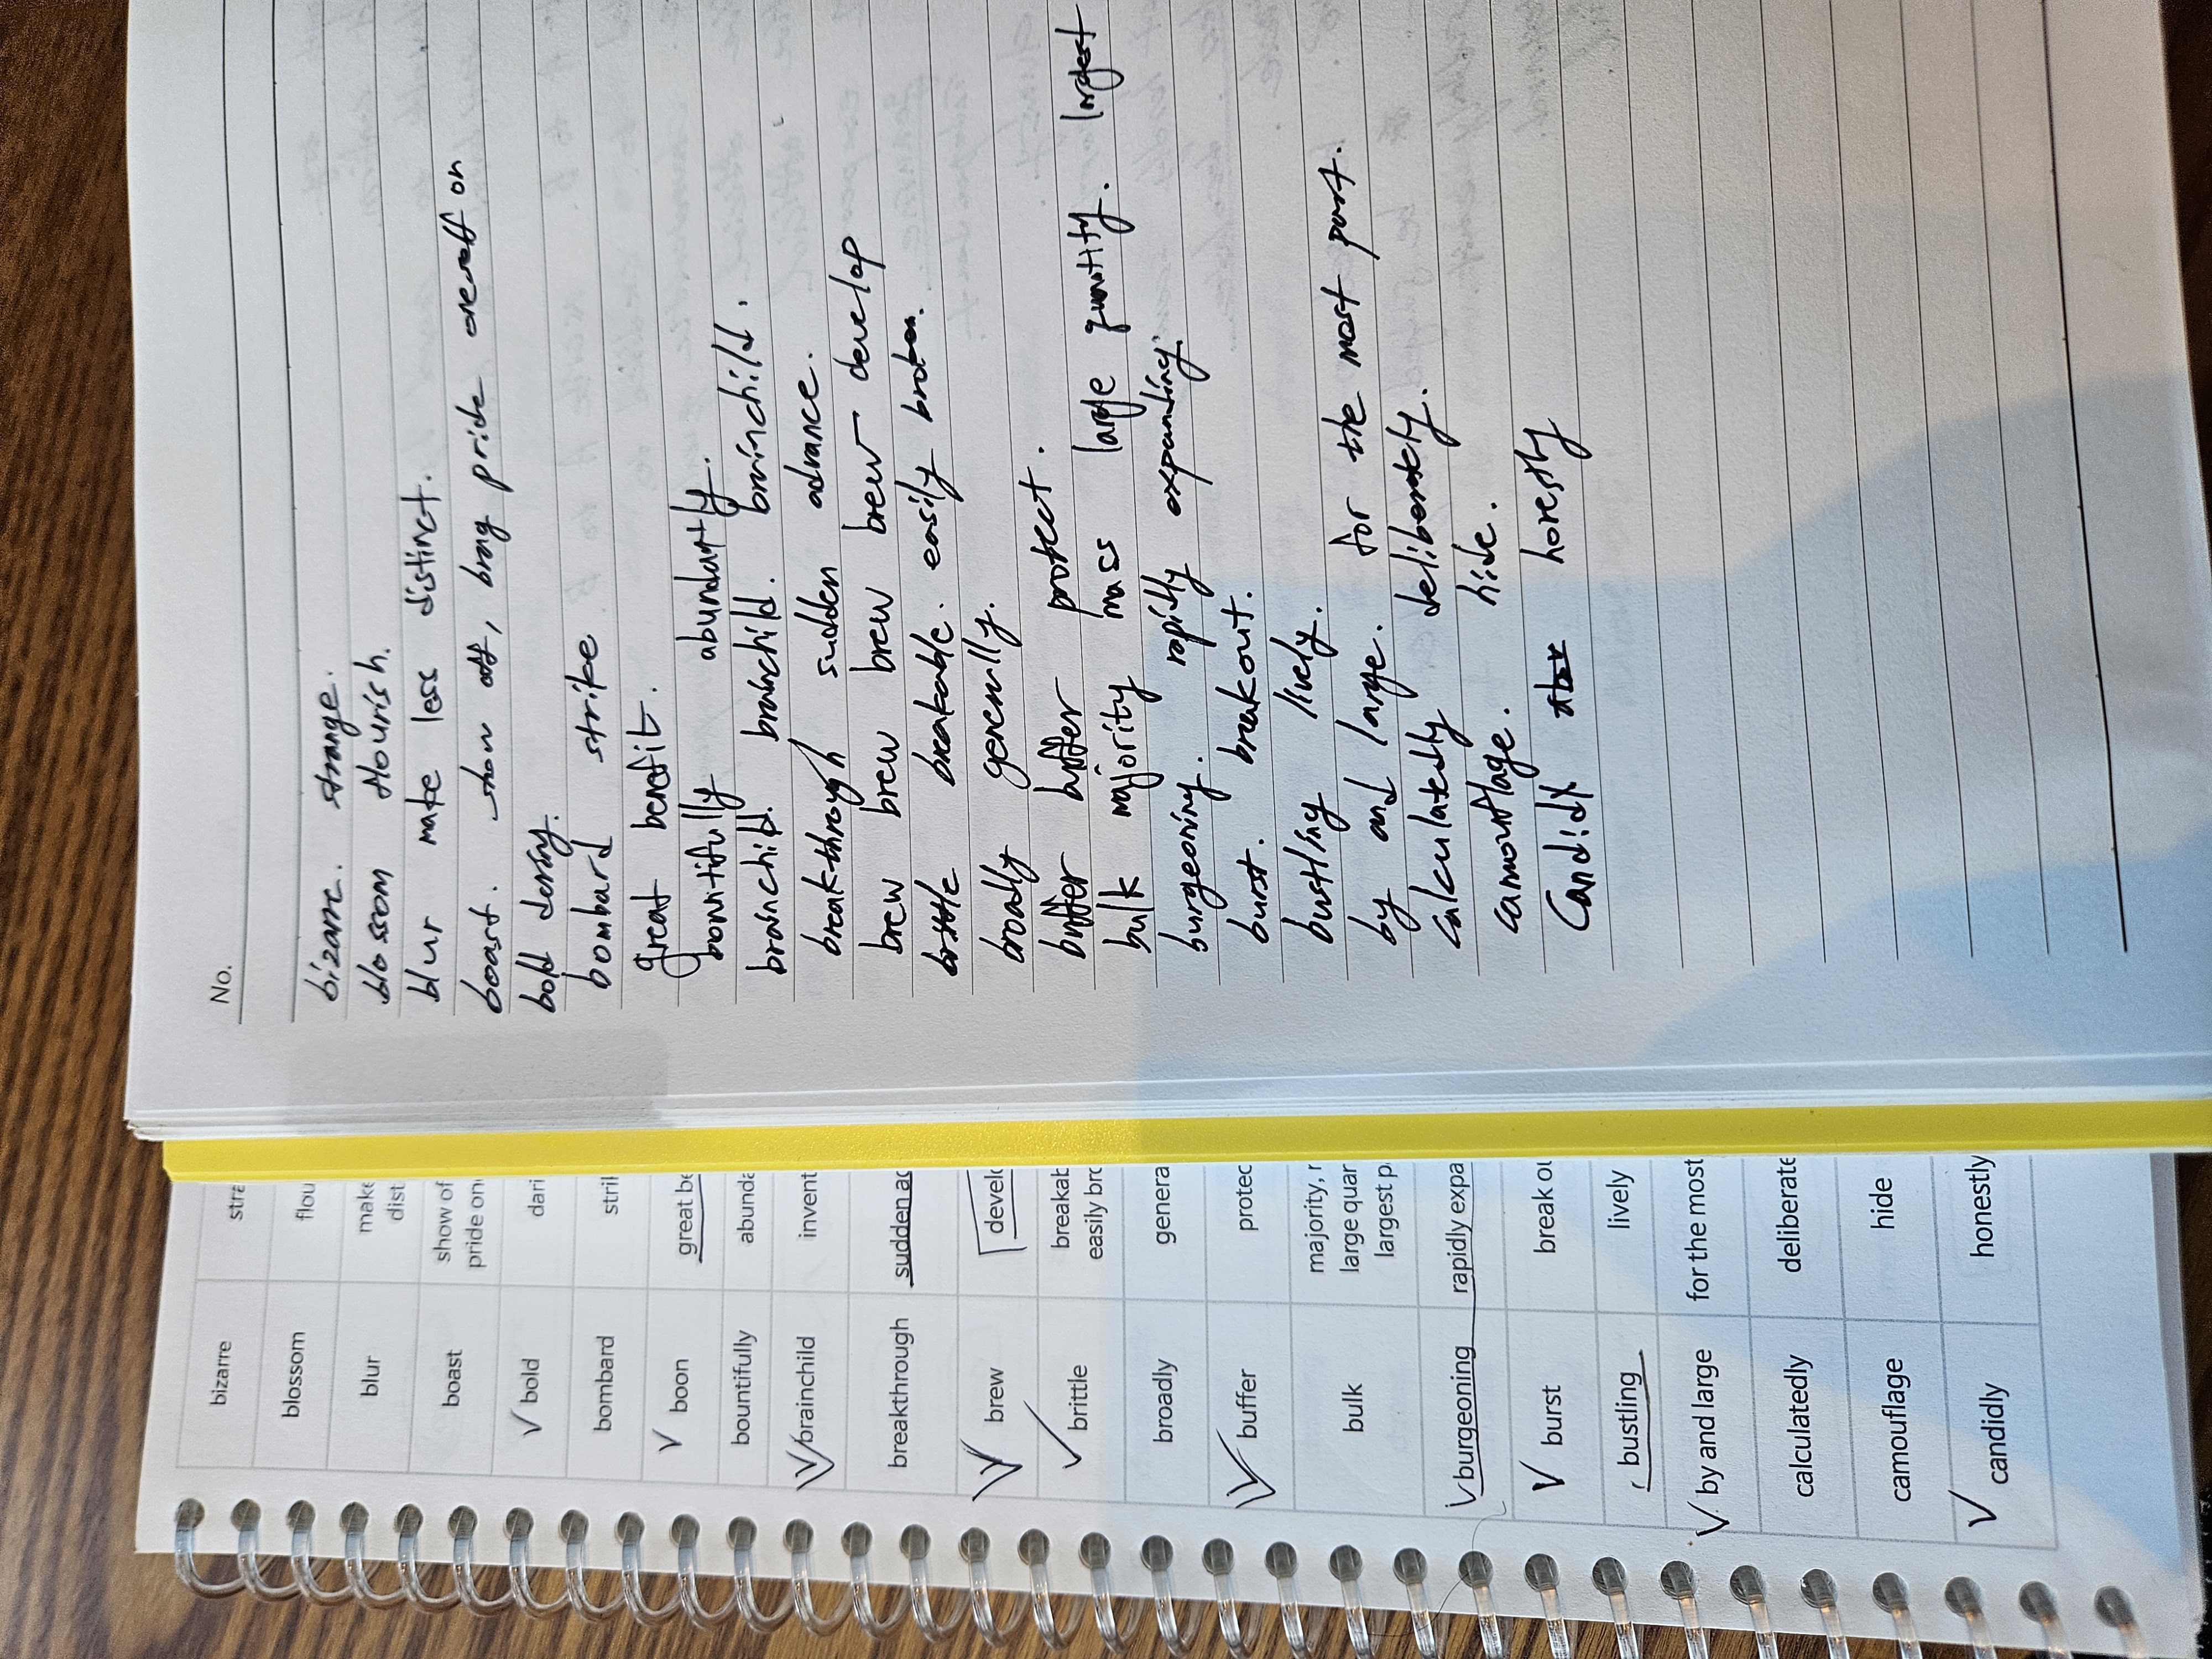 No.
bizarre. strange.
blossom flourish.
blur make less distinct.
boast. show off, brag pride oneself on
bold daring.
bombard strike
great benefit.
bountifully abundantly.
brainchild. brainchild. brainchild.
breakthrough sudden advance.
brew brew brew brew develop
brittle breakable. easily broken.
broally generally.
buffer buffer protect.
bulk majority mass large quantity. largest
burgeoning. rapidly expanding.
burst. breakout.
bustling lively.
by and large. for the most part.
calculatedly deliberately.
camouflage. hide.
Candidly honestly
bizarre stra
blossom flou
blur make
dist
boast show of
pride on
bold dari
bombard stril
boon great be
bountifully abunda
brainchild invent
breakthrough sudden ad
brew develo
brittle breakab
easily bro
broadly genera
buffer protec
bulk majority, r
large quar
largest p
burgeoning rapidly expa
burst break ou
bustling lively
by and large for the most
calculatedly deliberate
camouflage hide
candidly honestly